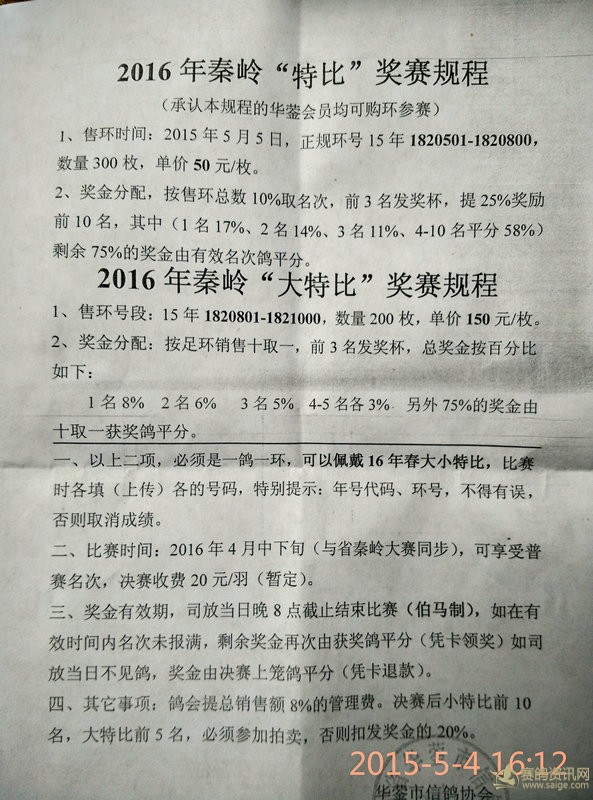 2016 年秦岭“特比”奖赛规程
（承认本规程的华蓥会员均可购环参赛）
1、售环时间：2015 年 5 月 5 日，正规环号 15 年 1820501-1820800，
数量 300 枚，单价 50 元/枚。
2、奖金分配，按售环总数 10%取名次，前 3 名发奖杯，提 25%奖励
前 10 名，其中（1 名 17%、2 名 14%、3 名 11%、4-10 名平分 58%）
剩余 75%的奖金由有效名次鸽平分。
2016 年秦岭“大特比”奖赛规程
1、售环号段：15 年 1820801-1821000，数量 200 枚，单价 150 元/枚。
2、奖金分配：按足环销售十取一，前 3 名发奖杯，总奖金按百分比
如下：
1 名 8% 2 名 6% 3 名 5% 4-5 名各 3% 另外 75%的奖金由
十取一获奖鸽平分。
一、以上二项，必须是一鸽一环，可以佩戴 16 年春大小特比，比赛
时各填（上传）各的号码，特别提示：年号代码、环号，不得有误，
否则取消成绩。
二、比赛时间：2016 年 4 月中下旬（与省秦岭大赛同步），可享受普
赛名次，决赛收费 20 元/羽（暂定）。
三、奖金有效期，司放当日晚 8 点截止结束比赛（伯马制），如在有
效时间内名次未报满，剩余奖金再次由获奖鸽平分（凭卡领奖）如司
放当日不见鸽，奖金由决赛上笼鸽平分（凭卡退款）。
四、其它事项：鸽会提总销售额 8%的管理费。决赛后小特比前 10
名，大特比前 5 名，必须参加拍卖，否则扣发奖金的 20%。
2015-5-4 16:12
华蓥市信鸽协会
赛鸽资讯网
www.saige.com